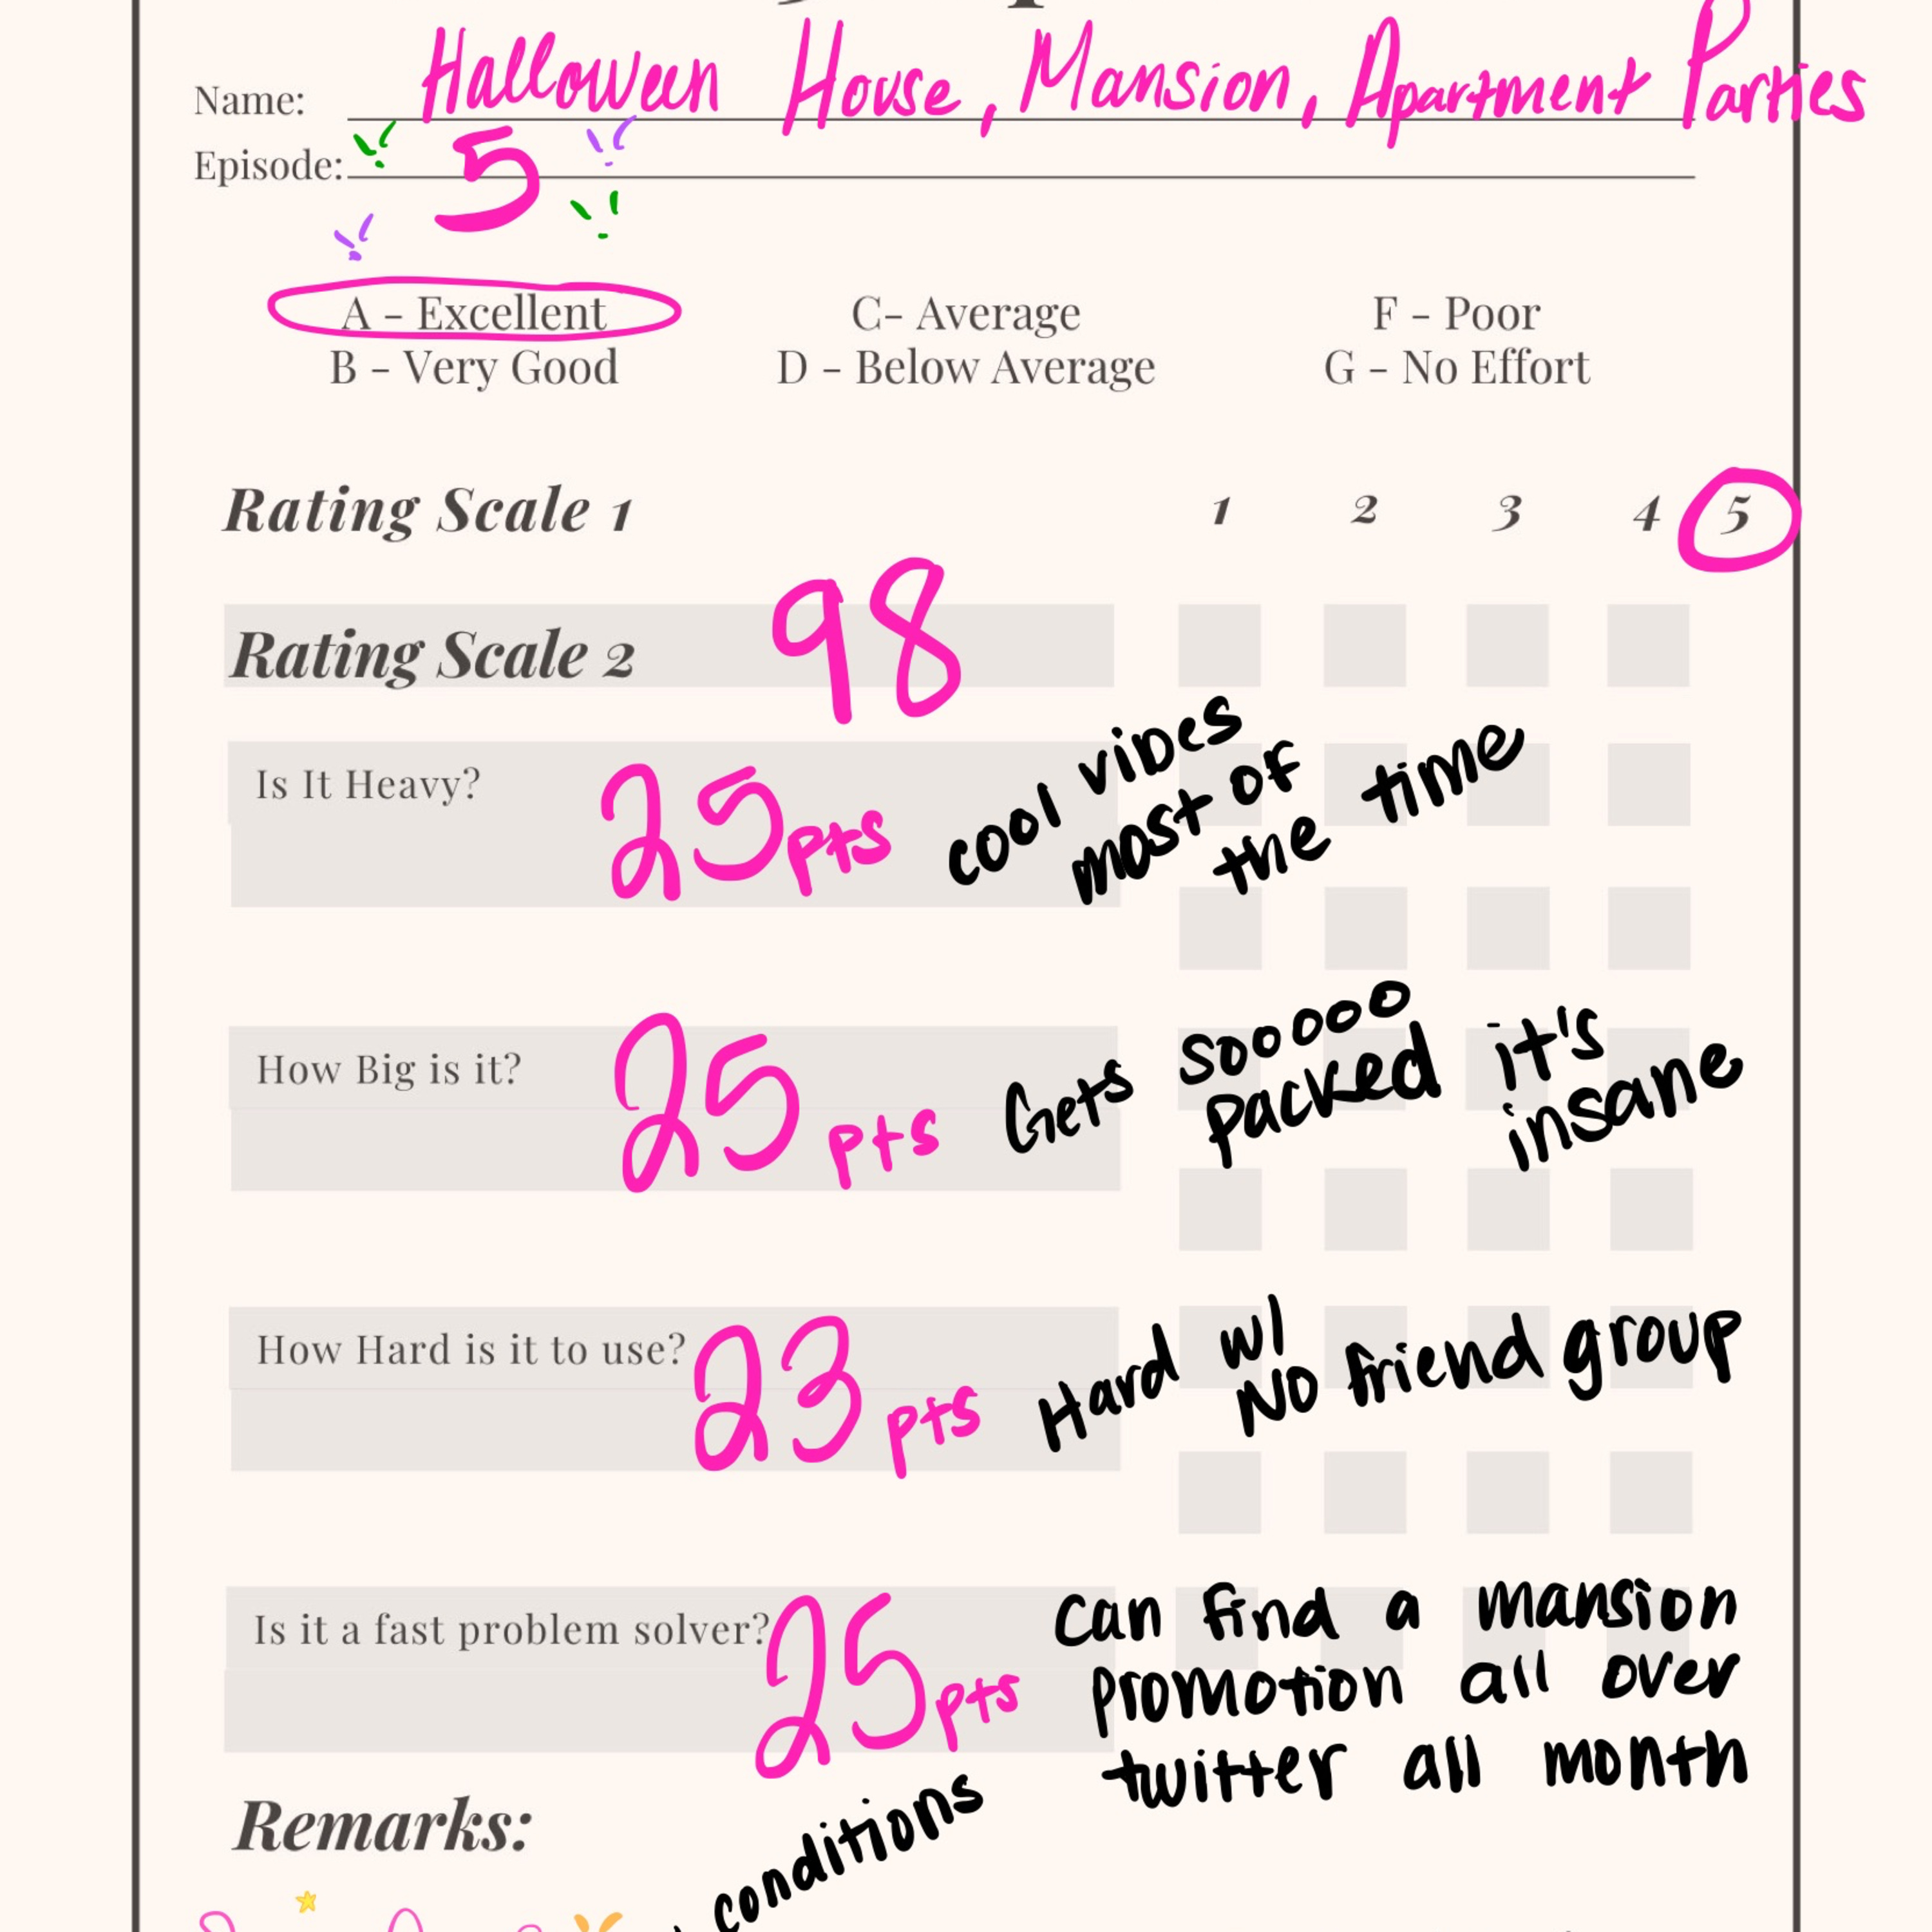 Name: Halloween House, Mansion, Apartment Parties
Episode: 5
A - Excellent C- Average F - Poor
B - Very Good D - Below Average G - No Effort
Rating Scale 1 1 2 3 4 5
Rating Scale 2 98
Is It Heavy? 25pts cool vibes
most of
the time
How Big is it? 25 pts Gets sooooo
packed it's
insane
How Hard is it to use? 23 pts Hard w/
NO friend group
Is it a fast problem solver? 25 pts can find a mansion
promotion all over
twitter all month
Remarks:
conditions